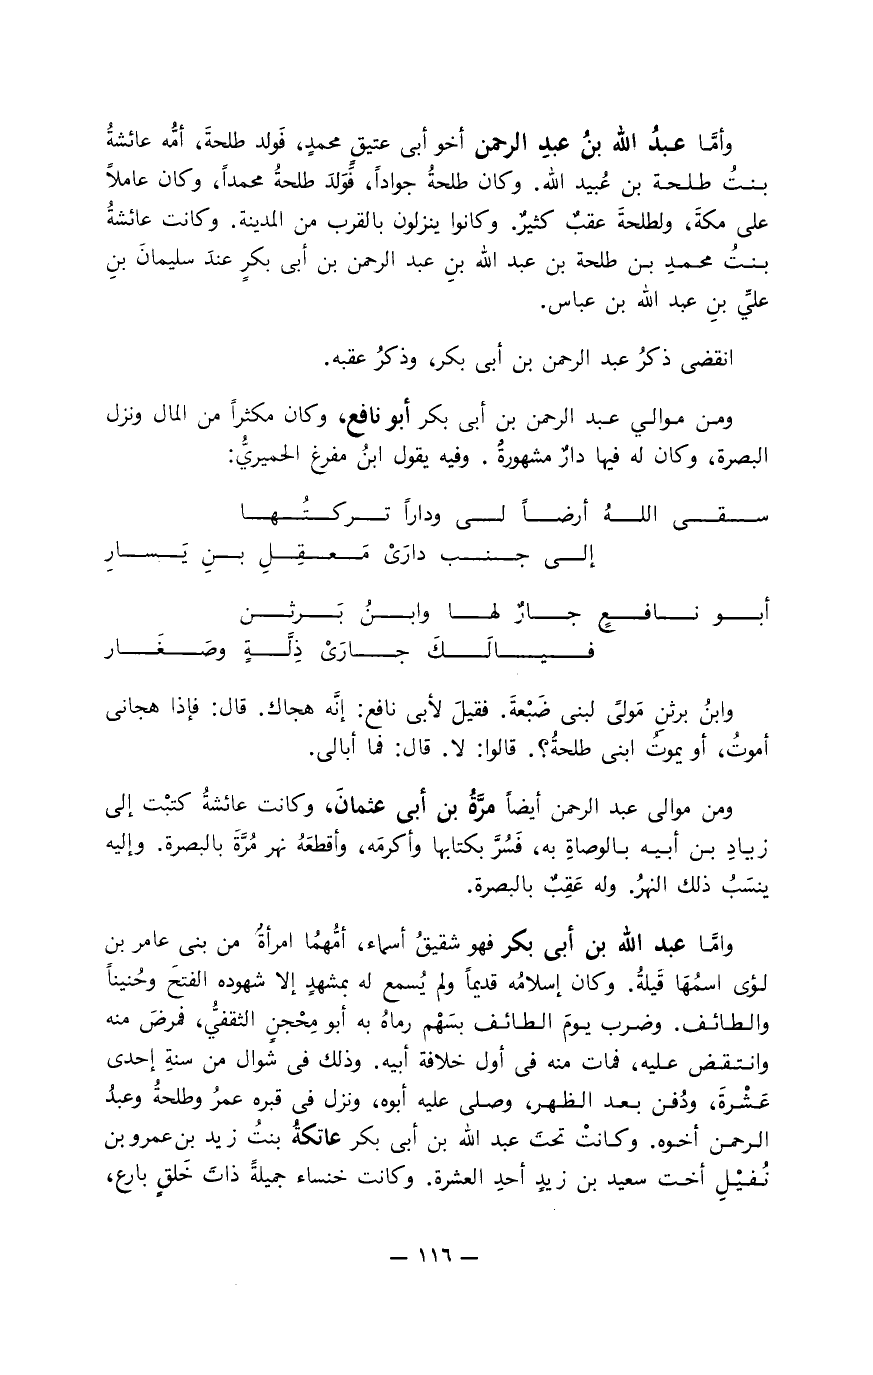 وأمَّا عبدُ الله بنُ عبدِ الرحمن أخو أبى عتيقٍ محمدٍ، فَولد طلحةَ، أمُّه عائشةُ
بنتُ طلحة بن عُبيد الله. وكان طلحةُ جواداً، فَوَلَدَ طلحةُ محمداً، وكان عاملاً
على مكةَ، ولطلحةَ عقبٌ كثيرٌ. وكانوا ينزلون بالقرب من المدينة. وكانت عائشةُ
بنتُ محمدِ بن طلحة بن عبد الله بنِ عبد الرحمن بن أبى بكرٍ عندَ سليمانَ بنِ
عليِّ بنِ عبد الله بن عباس.
انقضى ذكرُ عبد الرحمن بن أبى بكر، وذكرُ عقبه.
ومن موالي عبد الرحمن بن أبى بكر أبو نافع، وكان مكثراً من المال ونزل
البصرة، وكان له فيها دارٌ مشهورةٌ . وفيه يقول ابنُ مفرغ الحميريُّ:
سقى اللهُ أرضاً لى وداراً تركتُها
إلى جنب دارَىْ مَعقِلِ بنِ يَسارِ
أبو نافعٍ جارٌ لها وابنُ بَرثن
فيالَكَ جارَىْ ذِلَّةٍ وصَغَار
وابنُ برثنِ مَولىً لبنى ضَبْعةَ. فقيلَ لأبى نافع: إنَّه هجاك. قال: فإذا هجانى
أموتُ، أو يموتُ ابنى طلحةُ؟. قالوا: لا. قال: فما أبالى.
ومن موالى عبد الرحمن أيضاً مرَّةُ بن أبى عثمانَ، وكانت عائشةُ كتبْت إلى
زيادِ بن أبيه بالوصاةِ به، فَسُرَّ بكتابها وأكرمَه، وأقطعَهُ نهر مُرَّةَ بالبصرة. وإليه
ينسَبُ ذلك النهرُ. وله عَقِبٌ بالبصرة.
وامَّا عبد الله بن أبى بكر فهو شقيقُ أسماء، أمُّهمُا امرأةُ من بنى عامر بن
لؤى اسمُهَا قَيلةُ. وكان إسلامُه قديماً ولم يُسمع له بمشهدٍ إلا شهوده الفتحَ وحُنيناً
والطائف. وضرب يومَ الطائف بسَهْم رماهُ به أبو مِحْجنٍ الثقفيُّ، فمرضَ منه
وانتقض عليه، فمات منه فى أول خلافة أبيه. وذلك فى شوال من سنةِ إحدى
عَشْرةَ، ودُفن بعد الظهر، وصلى عليه أبوه، ونزل فى قبره عمرُ وطلحةُ وعبدُ
الرحمن أخوه. وكانتْ تحتَ عبد الله بن أبى بكر عاتكةُ بنتُ زيد بن عمرو بن
نُفَيْلِ أخت سعيد بن زيدٍ أحدِ العشرة. وكانت خنساء جميلةً ذاتَ خَلقٍ بارع،
— ١١٦ —